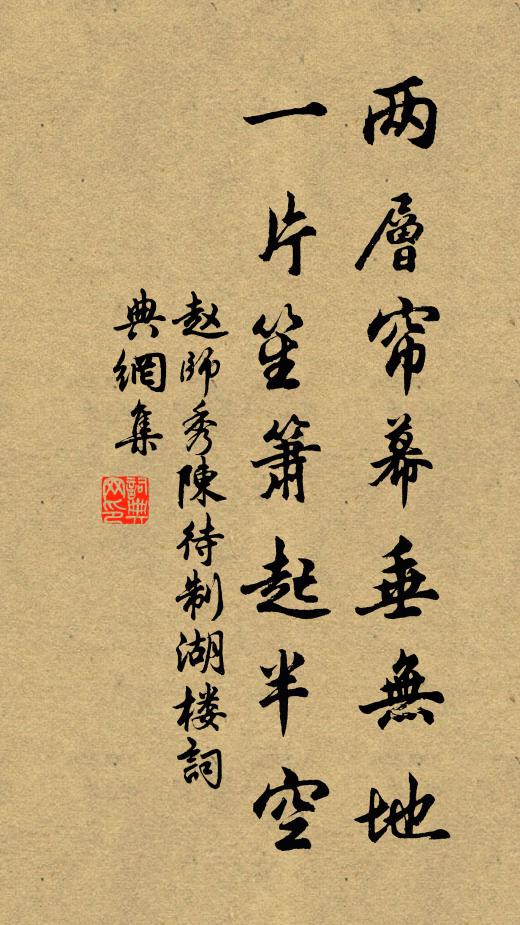 两層帘幕垂無地
一片笙簫起半空
赵師秀陳待制湖楼詞
典網集
詞典網印